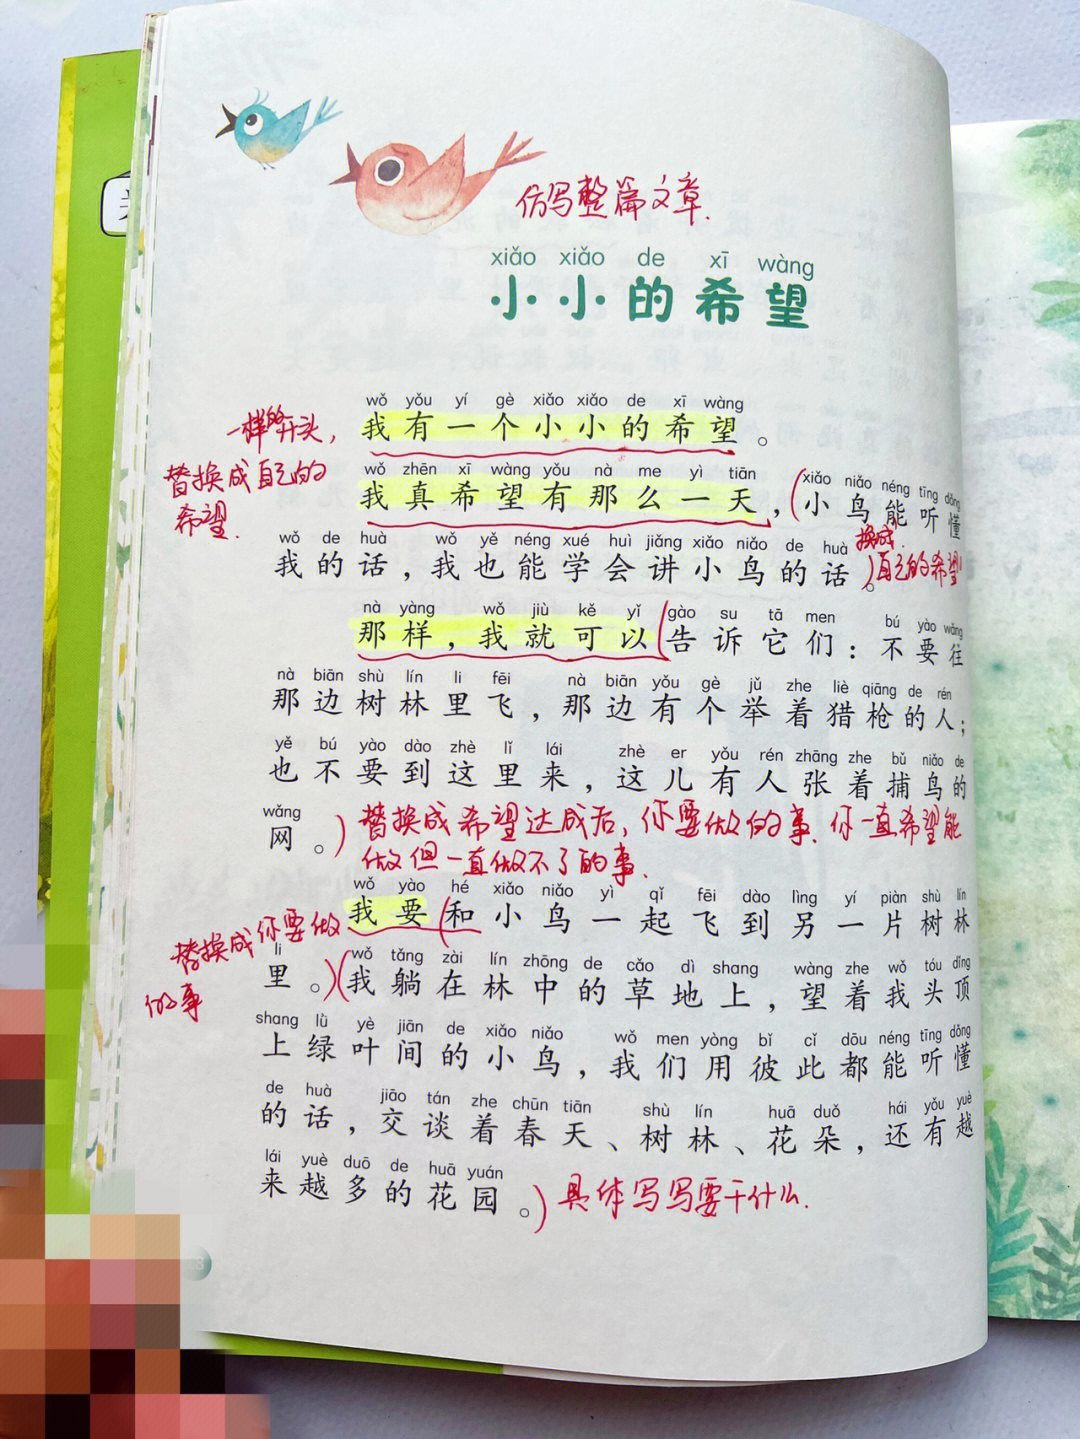 仿写整篇文章.
xiǎo xiǎo de xī wàng
小小的希望
wǒ yǒu yí gè xiǎo xiǎo de xī wàng
我有一个小小的希望。
一样的开头,
替换成自己的
希望.
wǒ zhēn xī wàng yǒu nà me yì tiān xiǎo niǎo néng tīng dǒng
我真希望有那么一天,(小鸟能听懂
换成
自己的希望
wǒ de huà wǒ yě néng xué huì jiǎng xiǎo niǎo de huà
我的话,我也能学会讲小鸟的话。)
nà yàng wǒ jiù kě yǐ gào su tā men bú yào wǎng
那样,我就可以(告诉它们:不要往
nà biān shù lín li fēi nà biān yǒu gè jǔ zhe liè qiāng de rén
那边树林里飞,那边有个举着猎枪的人;
yě bú yào dào zhè lǐ lái zhè er yǒu rén zhāng zhe bǔ niǎo de
也不要到这里来,这儿有人张着捕鸟的
wǎng
网。)
替换成希望达成后,你要做的事.你一直希望能
做但一直做不了的事.
wǒ yào hé xiǎo niǎo yì qǐ fēi dào lìng yí piàn shù lín
我要(和小鸟一起飞到另一片树林
替换成你要做
的事
li wǒ tǎng zài lín zhōng de cǎo dì shang wàng zhe wǒ tóu dǐng
里。)(我躺在林中的草地上,望着我头顶
shang lǜ yè jiān de xiǎo niǎo wǒ men yòng bǐ cǐ dōu néng tīng dǒng
上绿叶间的小鸟,我们用彼此都能听懂
de huà jiāo tán zhe chūn tiān shù lín huā duǒ hái yǒu yuè
的话,交谈着春天、树林、花朵,还有越
lái yuè duō de huā yuán
来越多的花园。)
具体写写要干什么.